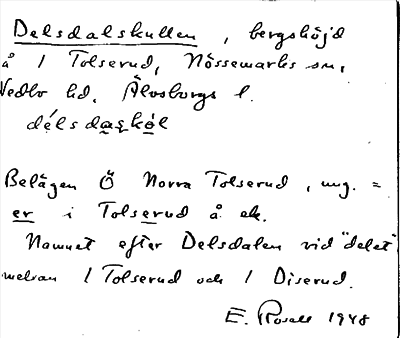 Delsdalskullen, bergshöjd
å 1 Tolserud, Nössemarks sn,
Vedbo hd, Älvsborgs l.
délsdaskòl
Belägen Ö Norra Tolserud, ung. =
er i Tolserud å ek.
Namnet efter Delsdalen vid "delet"
melvan 1 Tolserud och 1 Diserud.
E. Rosell 1948